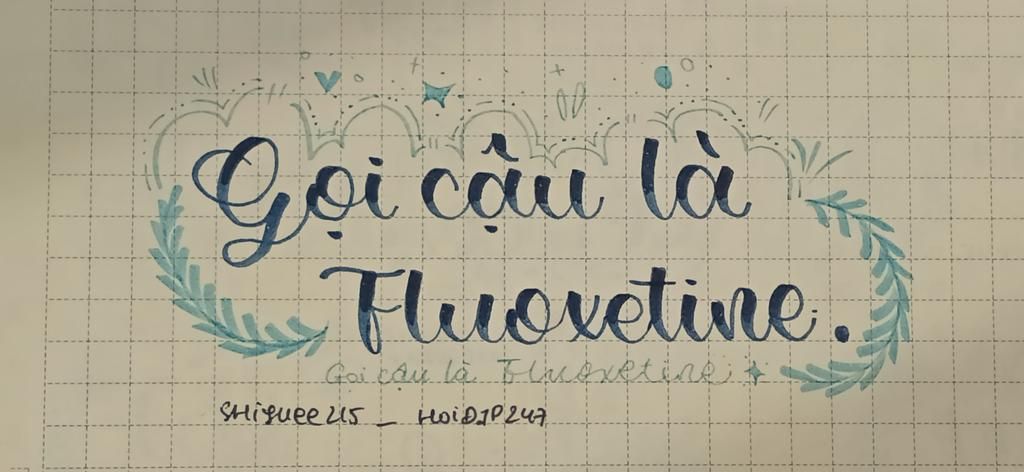 Gọi cậu là
Fluoxetine.
Gọi cậu là Fluoxetine
SHiyuee215 _ HoiDJP247